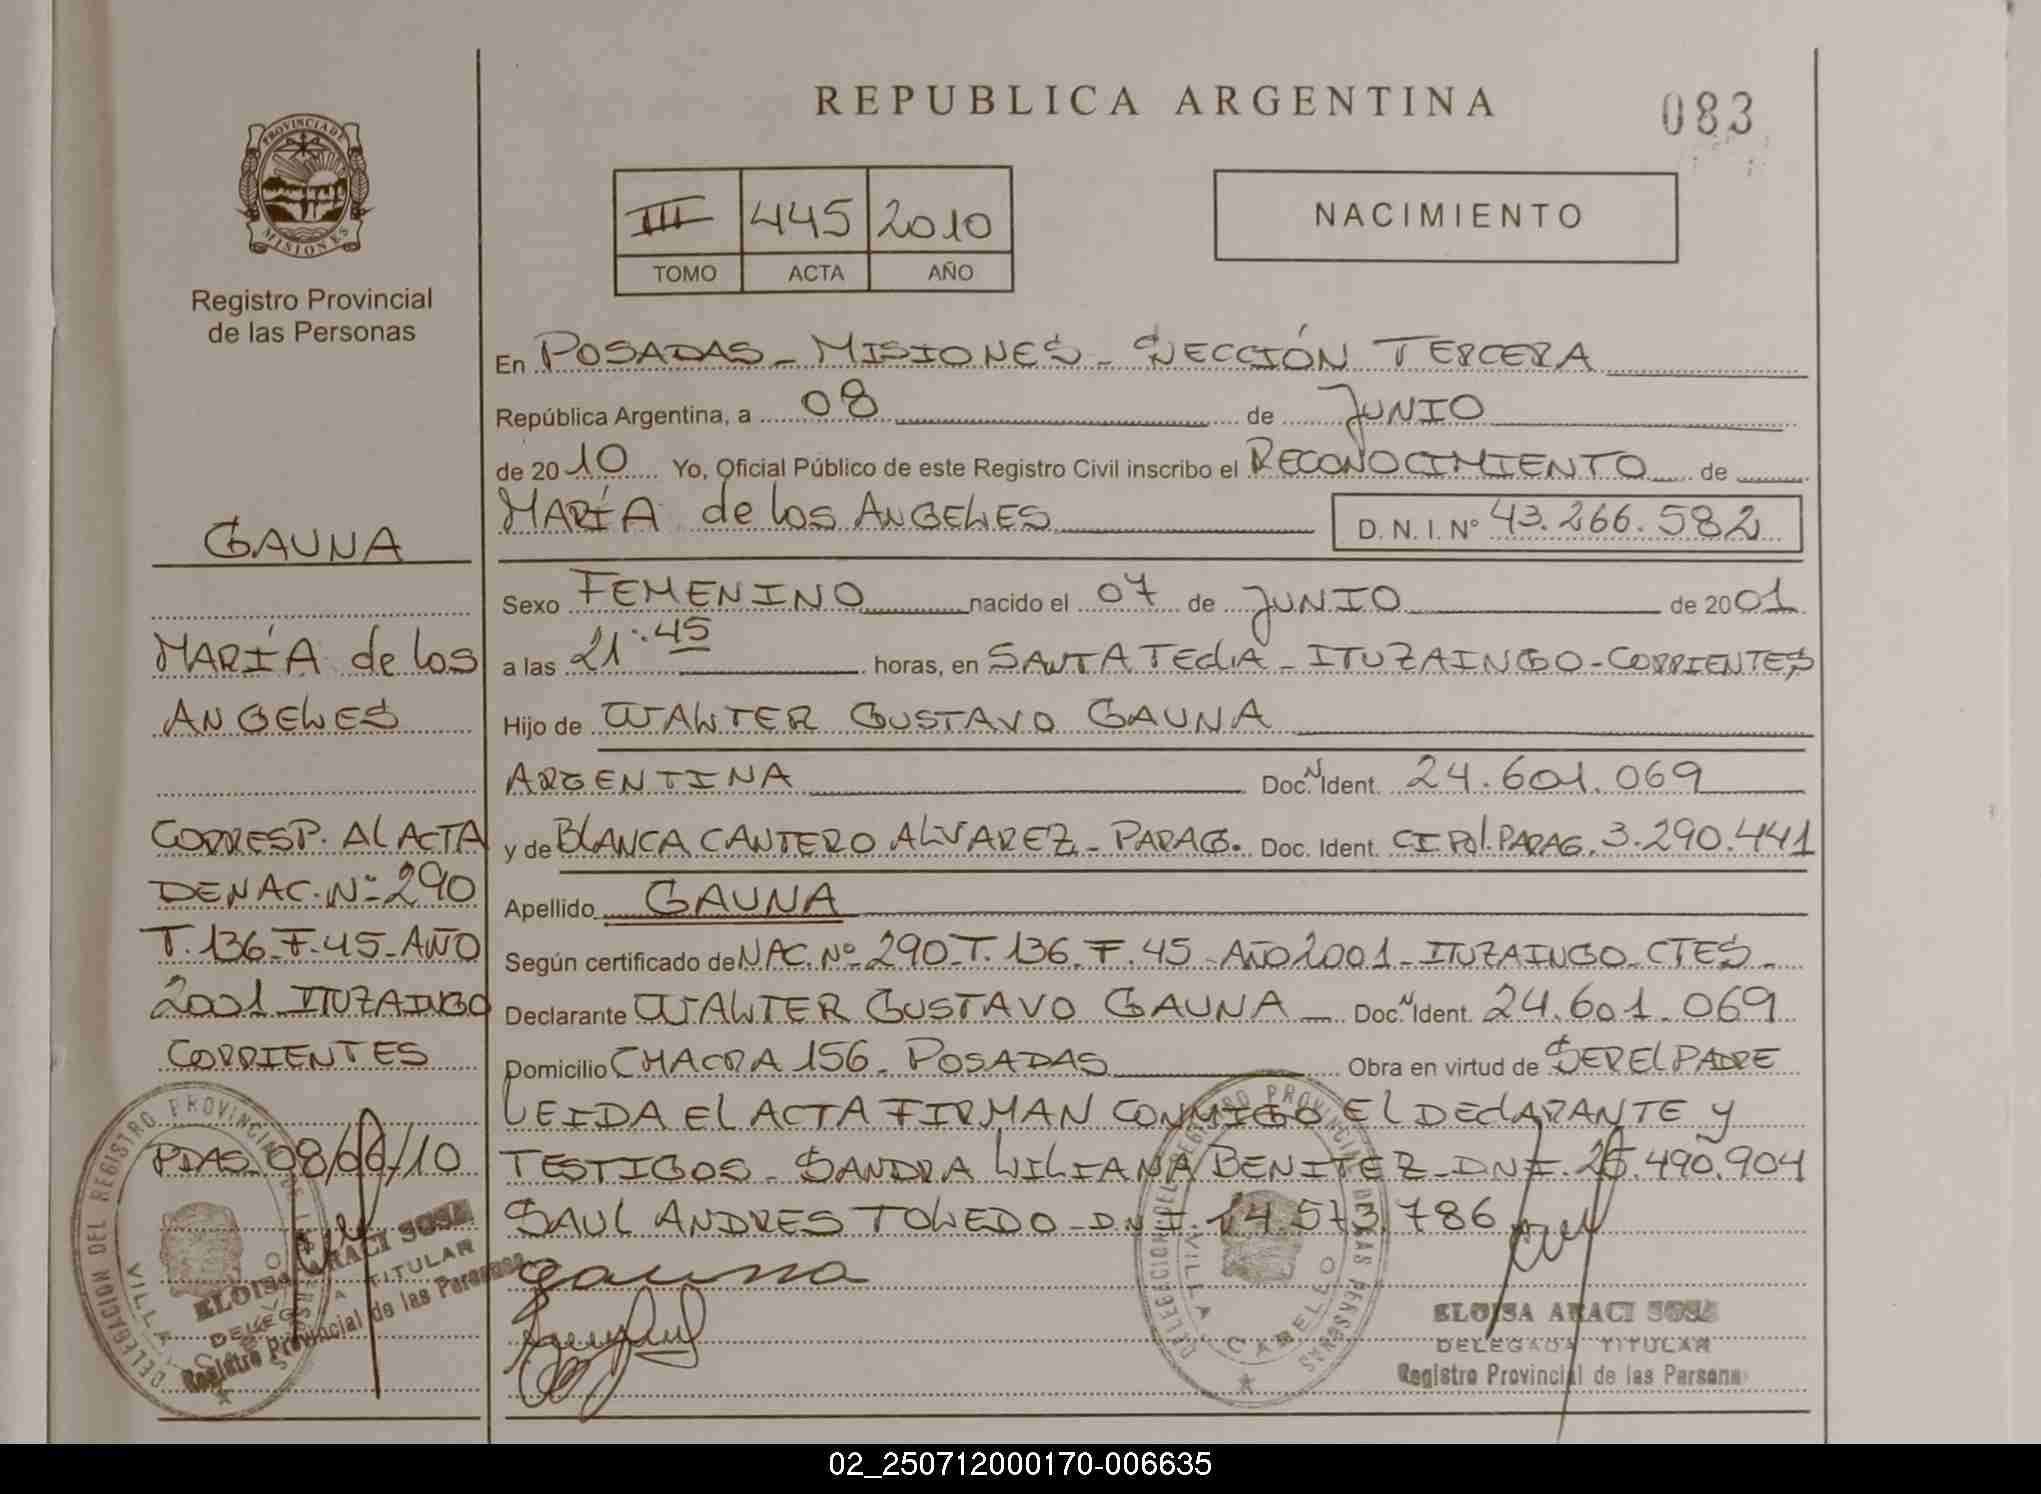 REPUBLICA ARGENTINA
083
PROVINCIA DE
MISIONES
Registro Provincial
de las Personas
III 445 2010
TOMO ACTA AÑO
NACIMIENTO
En POSADAS - MISIONES - SECCIÓN TERCERA
República Argentina, a 08 de JUNIO
de 2010 Yo, Oficial Público de este Registro Civil inscribo el RECONOCIMIENTO de
MARÍA de los ANGELES
D. N. I. Nº 43.266.582
Sexo FEMENINO nacido el 07 de JUNIO de 2001
a las 21:45 horas, en SANTA TEClA - ITUZAINGO - CORRIENTES
Hijo de WALTER GUSTAVO GAUNA
ARGENTINA Doc. N Ident. 24.601.069
y de BLANCA CANTERO ALVAREZ - PARAG. Doc. Ident. CI Pol. PARAG. 3.290.441
Apellido GAUNA
Según certificado de NAC. Nº 290 - T. 136 - F. 45 - AÑO 2001 - ITUZAINGO - CTES -
Declarante WALTER GUSTAVO GAUNA Doc. N Ident. 24.601.069
Domicilio CHACRA 156 - POSADAS Obra en virtud de SER El PADRE
LEIDA El ACTA FIRMAN CONMIGO El DEClARANTE y
TESTIGOS - SANDRA LILIANA BENITEZ - DNI. 25.490.904
SAUL ANDRES TOLEDO - DNI. 14.573.786
Gauna
GAUNA
MARÍA de los
ANGELES
CORRESP. Al ACTA
DE NAC. Nº 290
T. 136 - F. 45 - AÑO
2001 - ITUZAINGO
CORRIENTES
PDAS. 08/06/10
DELEGACION DEL REGISTRO PROVINCIAL DE LAS PERSONAS
VILLA CABELLO
ELOISA ARACI SOSA
DELEGADA TITULAR
Registro Provincial de las Personas
DELEGACION DEL REGISTRO PROVINCIAL DE LAS PERSONAS
VILLA CABELLO
ELOISA ARACI SOSA
DELEGADA TITULAR
Registro Provincial de las Personas
02_250712000170-006635